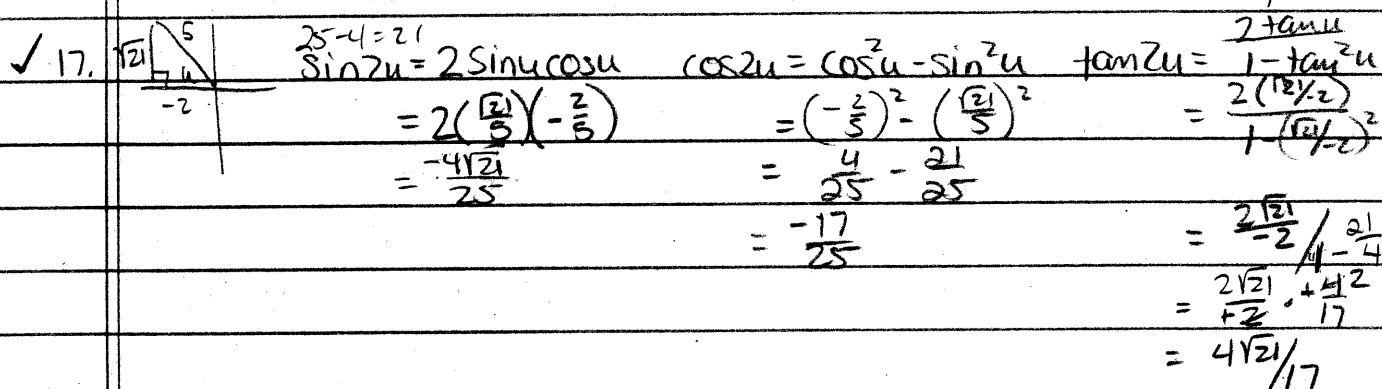 ✓ 17. √21 5 u -2
25-4=21
sin2u = 2sinucosu
= 2(√21/5)(-2/5)
= -4√21/25
cos2u = cos²u - sin²u
= (-2/5)² - (√21/5)²
= 4/25 - 21/25
= -17/25
tan2u = 2tanu/1-tan²u
= 2(√21/-2)/1-(√21/-2)²
= 2√21/-2 / 1-21/4
= 2√21/+2 · +4 2/17
= 4√21/17